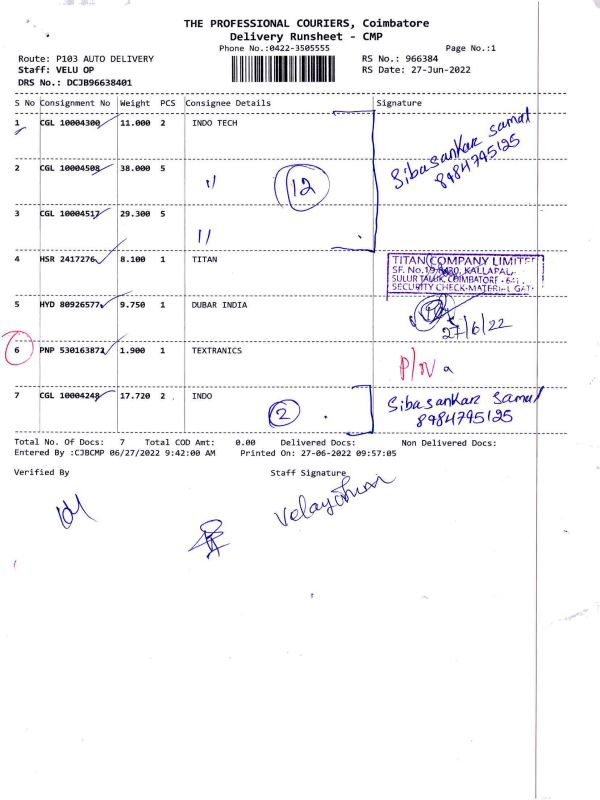 THE PROFESSIONAL COURIERS, Coimbatore
Delivery Runsheet - CMP
Phone No.:0422-3505555 Page No.:1
Route: P103 AUTO DELIVERY RS No.: 966384
Staff: VELU OP RS Date: 27-Jun-2022
DRS No.: DCJB96638401
S No Consignment No Weight PCS Consignee Details Signature
1 CGL 10004300 11.000 2 INDO TECH
Sibasankar Samal
8984795125
2 CGL 10004508 38.000 5 ,, 12
3 CGL 10004517 29.300 5 ,,
4 HSR 2417276 8.100 1 TITAN
TITAN COMPANY LIMITED
SF. No. KALLAPAL,
SULUR TALUK, COIMBATORE - 641
SECURITY CHECK-MATERIAL GATE
5 HYD 80926577 9.750 1 DUBAR INDIA
27/6/22
6 PNP 530163872 1.900 1 TEXTRANICS
7 CGL 10004248 17.720 2 INDO 2
Sibasankar Samal
8984795125
Total No. Of Docs: 7 Total COD Amt: 0.00 Delivered Docs: Non Delivered Docs:
Entered By :CJBCMP 06/27/2022 9:42:00 AM Printed On: 27-06-2022 09:57:05
Verified By Staff Signature